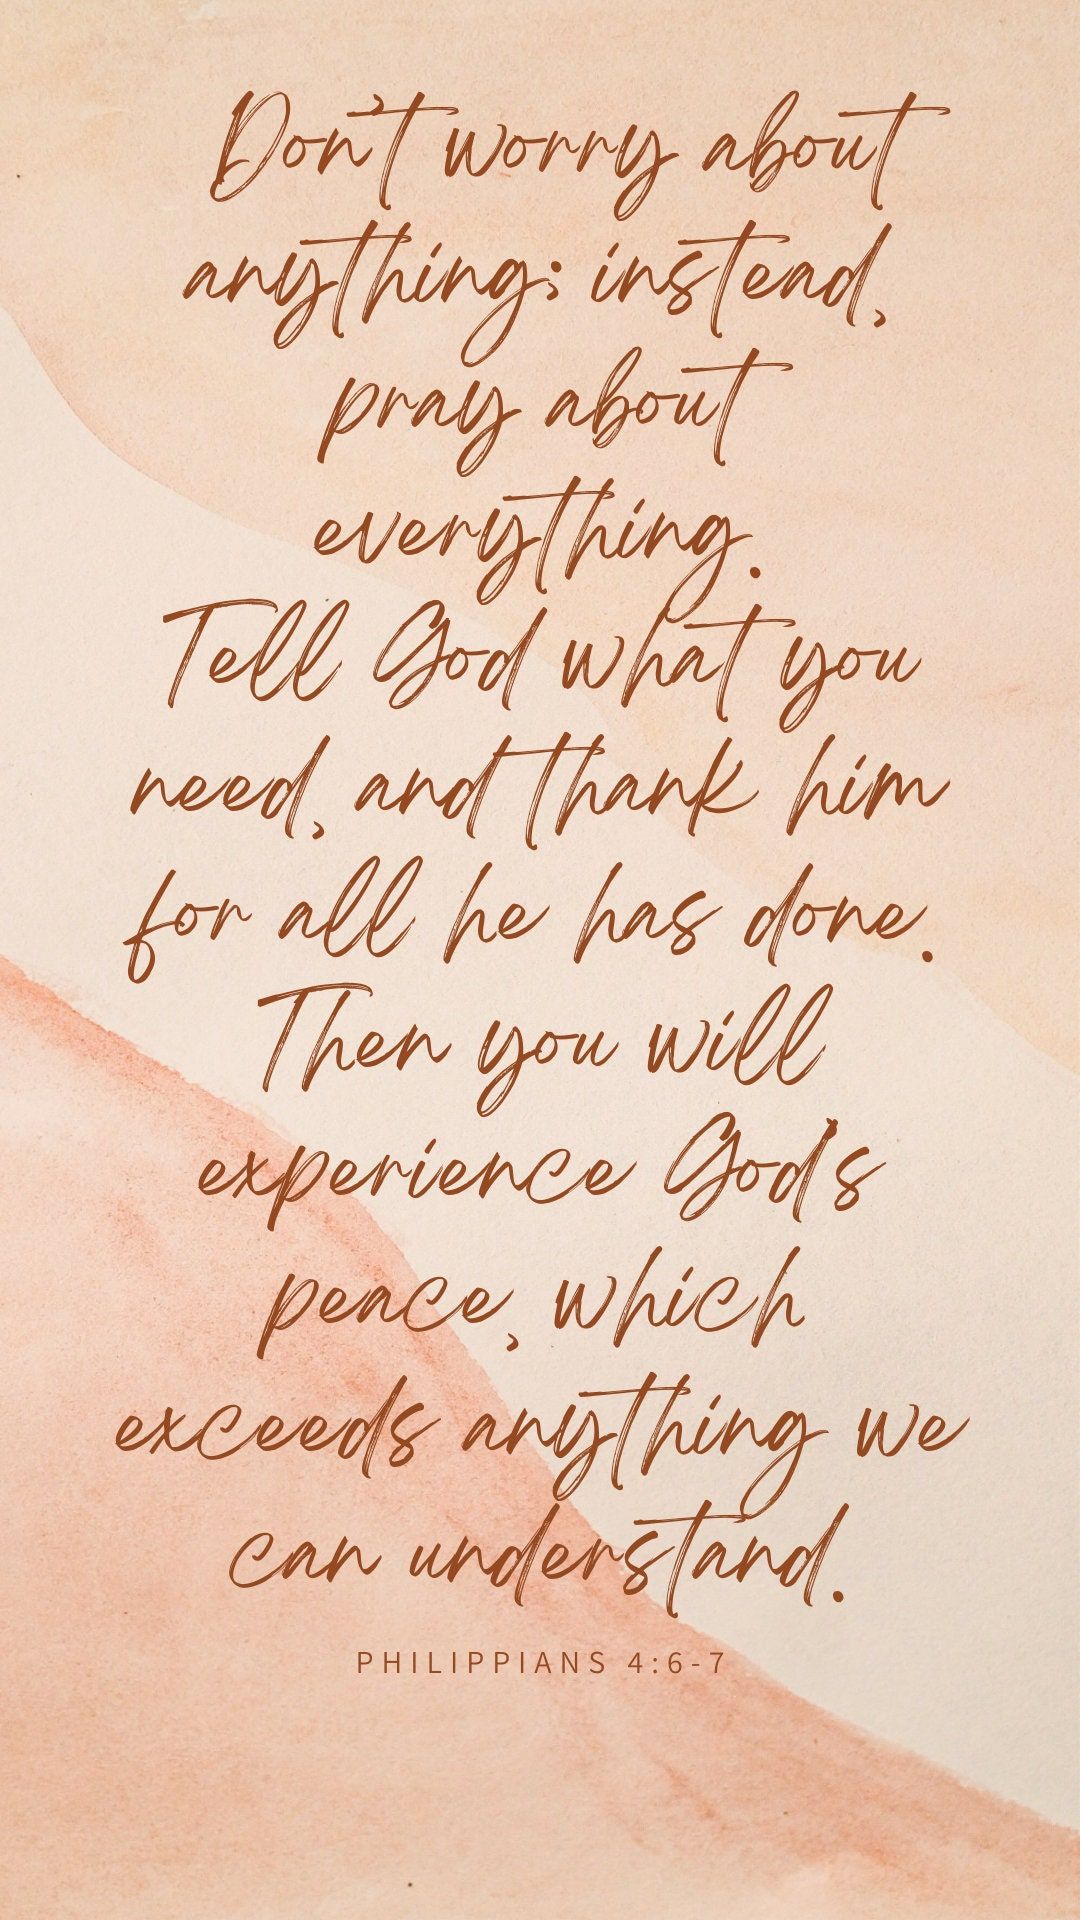 Don't worry about
anything; instead,
pray about
everything.
Tell God what you
need, and thank him
for all he has done.
Then you will
experience God's
peace, which
exceeds anything we
can understand.
PHILIPPIANS 4:6-7